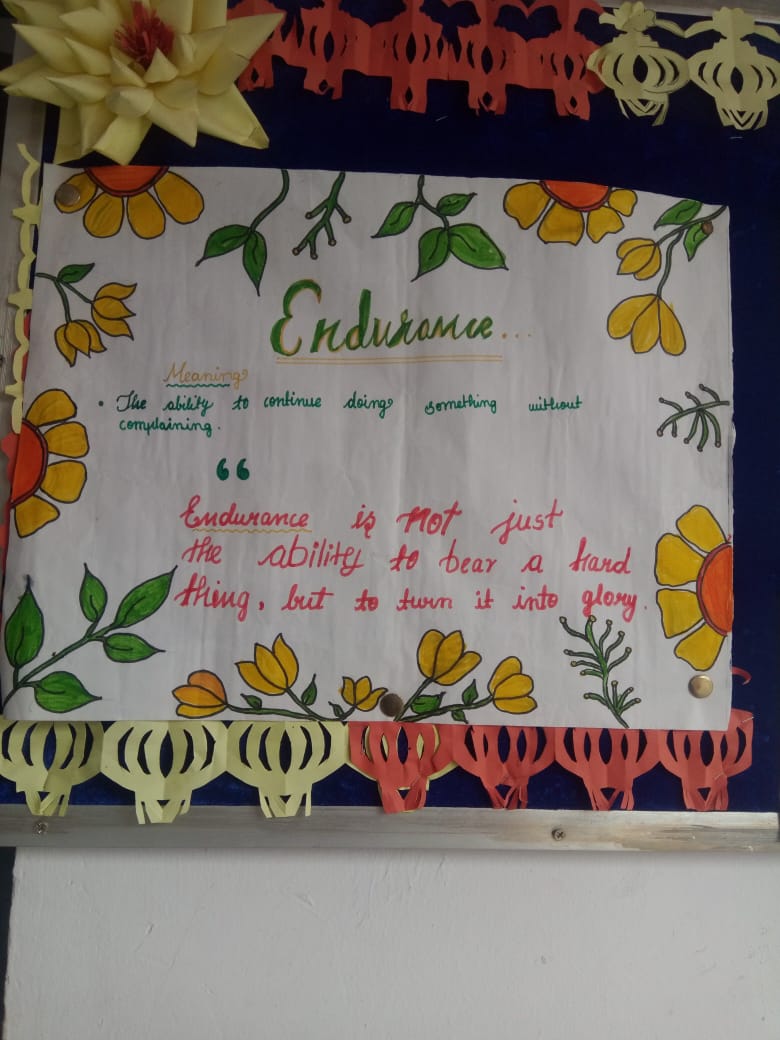 Endurance...
Meaning
• The ability to continue doing something without
complaining.
“
Endurance is not just
the ability to bear a hard
thing, but to turn it into glory.